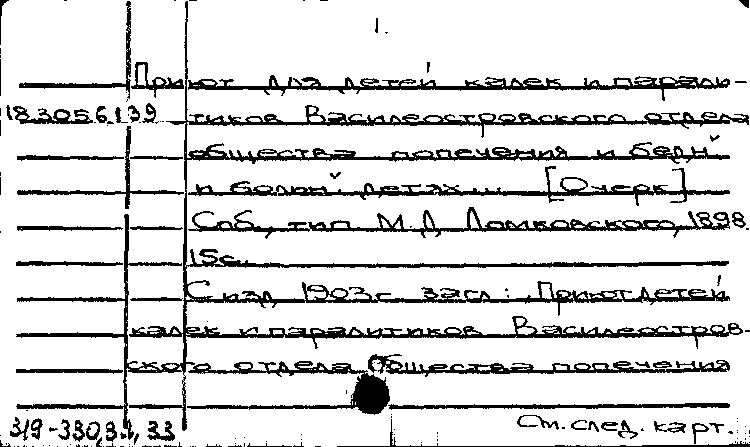 1.
Приют для детей калек и парали-
183056139 тиков Василеостровского отдела
общества попечения и бедн.
и больн. детях... [Очерк]
Спб., тип. М.Д. Ломковского, 1898
15с.
С изд. 1903 г. загл.: "Приют детей
калек и паралитиков Василеостров-
ского отдела Общества попечения
См. след. карт.